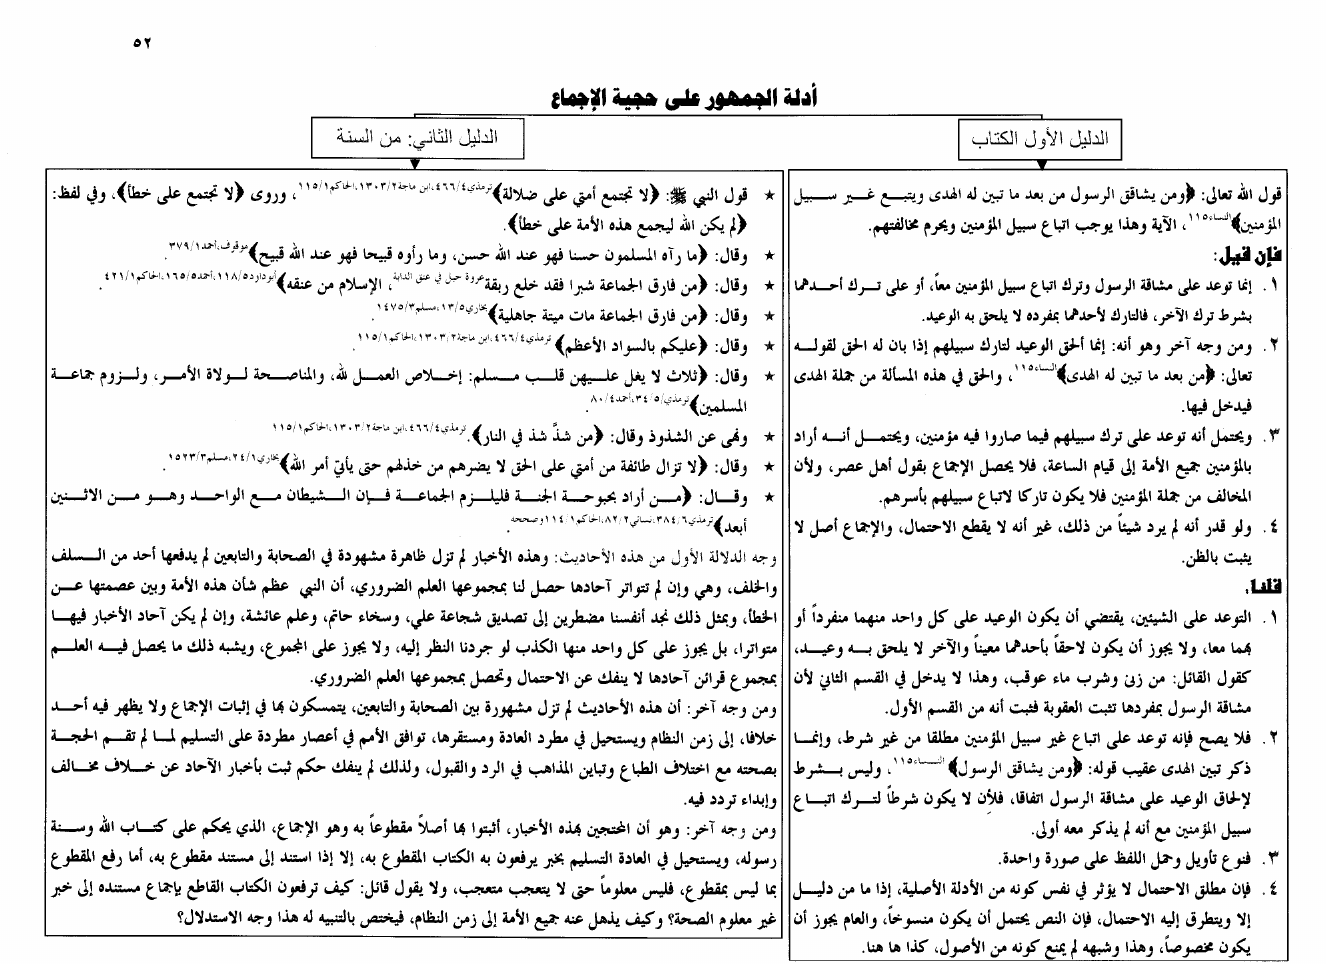 ٥٢
أدلة الجمهور على حجية الإجماع
الدليل الأول الكتاب
قول الله تعالى: ﴿ومن يشاقق الرسول من بعد ما تبين له الهدى ويتبع غير سبيل
المؤمنين﴾النساء١١٥، الآية وهذا يوجب اتباع سبيل المؤمنين ويحرم مخالفتهم.
فإن قيل:
١. إنما توعد على مشاقة الرسول وترك اتباع سبيل المؤمنين معاً، أو على ترك أحدهما
بشرط ترك الآخر، فالتارك لأحدهما بمفرده لا يلحق به الوعيد.
٢. ومن وجه آخر وهو أنه: إنما ألحق الوعيد لتارك سبيلهم إذا بان له الحق لقوله
تعالى: ﴿من بعد ما تبين له الهدى﴾النساء١١٥، والحق في هذه المسألة من جملة الهدى
فيدخل فيها.
٣. ويحتمل أنه توعد على ترك سبيلهم فيما صاروا فيه مؤمنين، ويحتمل أنه أراد
بالمؤمنين جميع الأمة إلى قيام الساعة، فلا يحصل الإجماع بقول أهل عصر، ولأن
المخالف من جملة المؤمنين فلا يكون تاركا لاتباع سبيلهم بأسرهم.
٤. ولو قدر أنه لم يرد شيئاً من ذلك، غير أنه لا يقطع الاحتمال، والإجماع أصل لا
يثبت بالظن.
قلنا.
١. التوعد على الشيئين، يقتضي أن يكون الوعيد على كل واحد منهما منفرداً أو
بهما معا، ولا يجوز أن يكون لاحقاً بأحدهما معيناً والآخر لا يلحق به وعيد،
كقول القائل: من زنى وشرب ماء عوقب، وهذا لا يدخل في القسم الثاني لأن
مشاقة الرسول بمفردها تثبت العقوبة فثبت أنه من القسم الأول.
٢. فلا يصح فإنه توعد على اتباع غير سبيل المؤمنين مطلقا من غير شرط، وإنما
ذكر تبين الهدى عقيب قوله: ﴿ومن يشاقق الرسول﴾النساء١١٥، وليس بشرط
لإلحاق الوعيد على مشاقة الرسول اتفاقا، فلأن لا يكون شرطاً لترك اتباع
سبيل المؤمنين مع أنه لم يذكر معه أولى.
٣. فنوع تأويل وحمل اللفظ على صورة واحدة.
٤. فإن مطلق الاحتمال لا يؤثر في نفس كونه من الأدلة الأصلية، إذا ما من دليل
إلا ويتطرق إليه الاحتمال، فإن النص يحتمل أن يكون منسوخاً، والعام يجوز أن
يكون مخصوصاً، وهذا وشبهه لم يمنع كونه من الأصول، كذا ها هنا.
الدليل الثاني: من السنة
★ قول النبي ﷺ: ﴿لا تجتمع أمتي على ضلالة﴾ترمذي٤٦٦/٤،ابن ماجة١٣٠٣/٢،الحاكم١١٥/١، وروى ﴿لا تجتمع على خطأ﴾، وفي لفظ:
﴿لم يكن الله ليجمع هذه الأمة على خطأ﴾.
★ وقال: ﴿ما رآه المسلمون حسنا فهو عند الله حسن، وما رأوه قبيحا فهو عند الله قبيح﴾موقوف،أحمد٣٧٩/١.
★ وقال: ﴿من فارق الجماعة شبرا فقد خلع ربقةعروة حبل في عنق الدابة، الإسلام من عنقه﴾أبوداود١١٨/٥،أحمد١٦٥/٥،الحاكم٤٢١/١
★ وقال: ﴿من فارق الجماعة مات ميتة جاهلية﴾بخاري١٣/٥،مسلم١٤٧٥/٣.
★ وقال: ﴿عليكم بالسواد الأعظم﴾ترمذي٤٦٦/٤،ابن ماجة١٣٠٣/٢،الحاكم١١٥/١
★ وقال: ﴿ثلاث لا يغل عليهن قلب مسلم: إخلاص العمل لله، والمناصحة لولاة الأمر، ولزوم جماعة
المسلمين﴾ترمذي٣٤/٥،أحمد٨٠/٤.
★ ونهى عن الشذوذ وقال: ﴿من شذَّ شذ في النار﴾.ترمذي٤٦٦/٤،ابن ماجة١٣٠٣/٢،الحاكم١١٥/١
★ وقال: ﴿لا تزال طائفة من أمتي على الحق لا يضرهم من خذلهم حتى يأتي أمر الله﴾بخاري٢٤/١،مسلم١٥٢٣/٣.
★ وقال: ﴿من أراد بحبوحة الجنة فليلزم الجماعة فإن الشيطان مع الواحد وهو من الاثنين
أبعد﴾ترمذي٣٨٤/٦،نسائي٨٢/٢،الحاكم١١٤/١وصححه.
وجه الدلالة الأول من هذه الأحاديث: وهذه الأخبار لم تزل ظاهرة مشهودة في الصحابة والتابعين لم يدفعها أحد من السلف
والخلف، وهي وإن لم تتواتر آحادها حصل لنا بمجموعها العلم الضروري، أن النبي عظم شأن هذه الأمة وبين عصمتها عن
الخطأ، وبمثل ذلك نجد أنفسنا مضطرين إلى تصديق شجاعة علي، وسخاء حاتم، وعلم عائشة، وإن لم يكن آحاد الأخبار فيها
متواترا، بل يجوز على كل واحد منها الكذب لو جردنا النظر إليه، ولا يجوز على المجموع، ويشبه ذلك ما يحصل فيه العلم
بمجموع قرائن آحادها لا ينفك عن الاحتمال وتحصل بمجموعها العلم الضروري.
ومن وجه آخر: أن هذه الأحاديث لم تزل مشهورة بين الصحابة والتابعين، يتمسكون بها في إثبات الإجماع ولا يظهر فيه أحد
خلافا، إلى زمن النظام ويستحيل في مطرد العادة ومستقرها، توافق الأمم في أعصار مطردة على التسليم لما لم تقم الحجة
بصحته مع اختلاف الطباع وتباين المذاهب في الرد والقبول، ولذلك لم ينفك حكم ثبت بأخبار الآحاد عن خلاف مخالف
وإبداء تردد فيه.
ومن وجه آخر: وهو أن المحتجين بهذه الأخبار، أثبتوا بها أصلاً مقطوعاً به وهو الإجماع، الذي يحكم على كتاب الله وسنة
رسوله، ويستحيل في العادة التسليم بخبر يرفعون به الكتاب المقطوع به، إلا إذا استند إلى مستند مقطوع به، أما رفع المقطوع
بما ليس بمقطوع، فليس معلوماً حتى لا يتعجب متعجب، ولا يقول قائل: كيف ترفعون الكتاب القاطع بإجماع مستنده إلى خبر
غير معلوم الصحة؟ وكيف يذهل عنه جميع الأمة إلى زمن النظام، فيختص بالتنبيه له هذا وجه الاستدلال؟